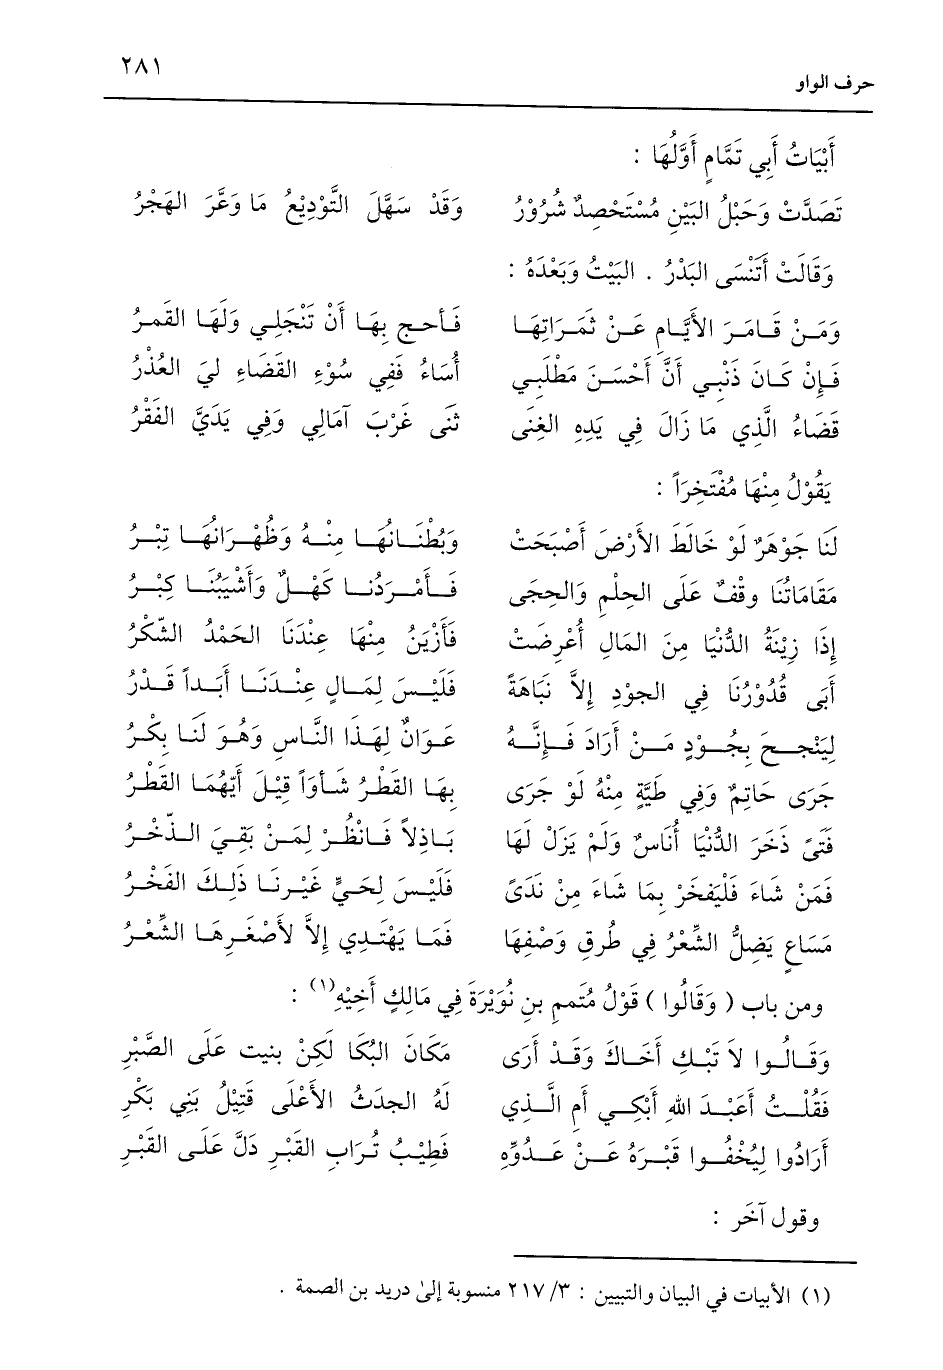 ٢٨١
حرف الواو
أَبْيَاتُ أَبِي تَمَّامٍ أَوَّلُهَا :
تَصَدَّتْ وَحَبْلُ البَيْنِ مُسْتَحْصِدٌ شُرُوْرُ وَقَدْ سَهَّلَ التَّوْدِيْعُ مَا وَعَّرَ الهَجْرُ
وَقَالَتْ أَتَنْسَى البَدْرُ . البَيْتُ وَبَعْدَهُ :
وَمَنْ قَامَرَ الأَيَّامِ عَنْ ثَمَرَاتِهَا فَأَحجِ بِهَا أَنْ تَنْجَلِي وَلَهَا القَمرُ
فَإِنْ كَانَ ذَنْبِي أَنَّ أَحْسَنَ مَطْلَبِي أُسَاءُ فَفِي سُوْءِ القَضَاءِ لِيَ العُذْرُ
قَضَاءُ الَّذِي مَا زَالَ فِي يَدِهِ الغِنَى ثَنَى غَرْبَ آمَالِي وَفِي يَدَيَّ الفَقْرُ
يَقُوْلُ مِنْهَا مُفْتَخِرَاً :
لَنَا جَوْهَرٌ لَوْ خَالَطَ الأَرْضَ أَصْبَحَتْ وَبُطْنَانُهَا مِنْهُ وَظُهْرَانُهَا تِبْرُ
مَقَامَاتُنَا وقْفٌ عَلَى الحِلْمِ وَالحِجَى فَأَمْرَدُنَا كَهْلٌ وَأَشْيَبُنَا كِبْرُ
إِذَا زِيْنَةُ الدُّنْيَا مِنَ المَالِ أُعْرِضَتْ فَأَزْيَنُ مِنْهَا عِنْدَنَا الحَمْدُ الشّكْرُ
أَبَى قُدُوْرُنَا فِي الجوْدِ إِلاَّ نَبَاهَةً فَلَيْسَ لِمَالٍ عِنْدَنَا أَبَداً قَدْرُ
لِيَنْجحَ بِجُوْدٍ مَنْ أَرَادَ فَإِنَّهُ عَوَانٌ لِهَذَا النَّاسِ وَهُوَ لَنَا بِكْرُ
جَرَى حَاتِمٌ وَفِي طَيَّةٍ مِنْهُ لَوْ جَرَى بِهَا القَطْرُ شَأوَاً قِيْلَ أَيّهُمَا القَطْرُ
فَتَىً ذَخَرَ الدُّنْيَا أُنَاسٌ وَلَمْ يَزَلْ لَهَا بَاذِلاً فَانْظُرْ لِمَنْ بَقِيَ الذّخْرُ
فَمَنْ شَاءَ فَلْيَفخَرْ بِمَا شَاءَ مِنْ نَدَىً فَلَيْسَ لِحَيٍّ غَيْرنَا ذَلِكَ الفَخْرُ
مَسَاعٍ يَضِلُّ الشِّعْرُ فِي طُرقِ وَصْفِهَا فَمَا يَهْتَدِي إِلاَّ لأَصْغَرِهَا الشِّعْرُ
ومن باب ( وَقَالُوا ) قَوْلُ مُتَممِ بنِ نُوَيْرَةَ فِي مَالِكٍ أَخِيْهِ(١) :
وَقَالُوا لاَ تَبْكِ أَخَاكَ وَقَدْ أَرَى مَكَانَ البُكَا لَكِنْ بنيت عَلَى الصَّبْرِ
فَقُلْتُ أَعَبْدَ اللهِ أَبْكِي أم الَّذِي لَهُ الجدَثُ الأَعْلَى قَتِيْلُ بَنِي بَكْرِ
أَرَادُوا لِيُخْفُوا قَبْرَهُ عَنْ عَدُوِّهِ فَطِيْبُ تُرَابِ القَبْرِ دَلَّ عَلَى القَبْرِ
وقول آخَر :
(١) الأبيات في البيان والتبيين : ٢١٧/٣ منسوبة إلى دريد بن الصمة .